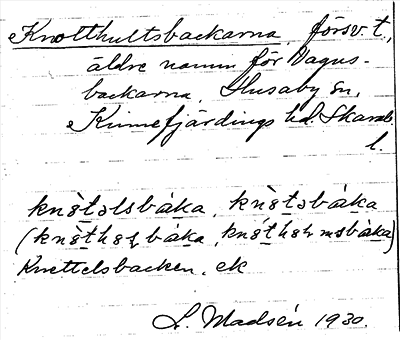 Knotthultsbackarna, försv. t.,
äldre namn för Vagus-
backarna, Husaby sn,
Kinnefjärdings hd. Skarab.
l.
knòtəlsbàka, knòtəsbàka
Knettelsbacken, ek
L. Madsén 1930.